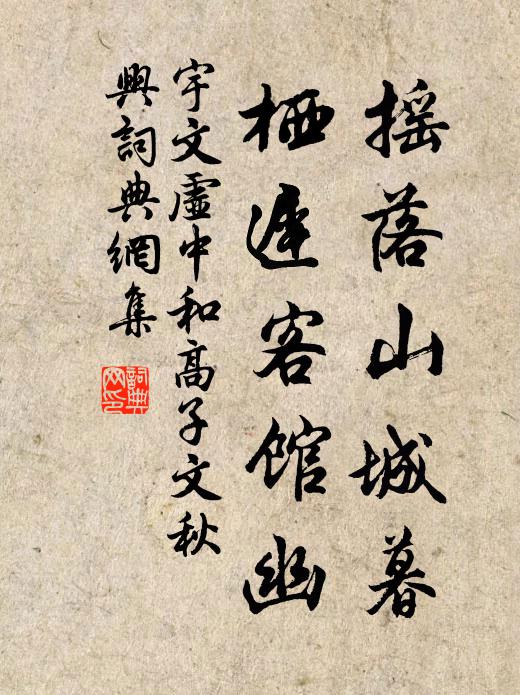 摇落山城暮
栖遲客館幽
宇文虛中和高子文秋
興詞典網集
詞典
网印